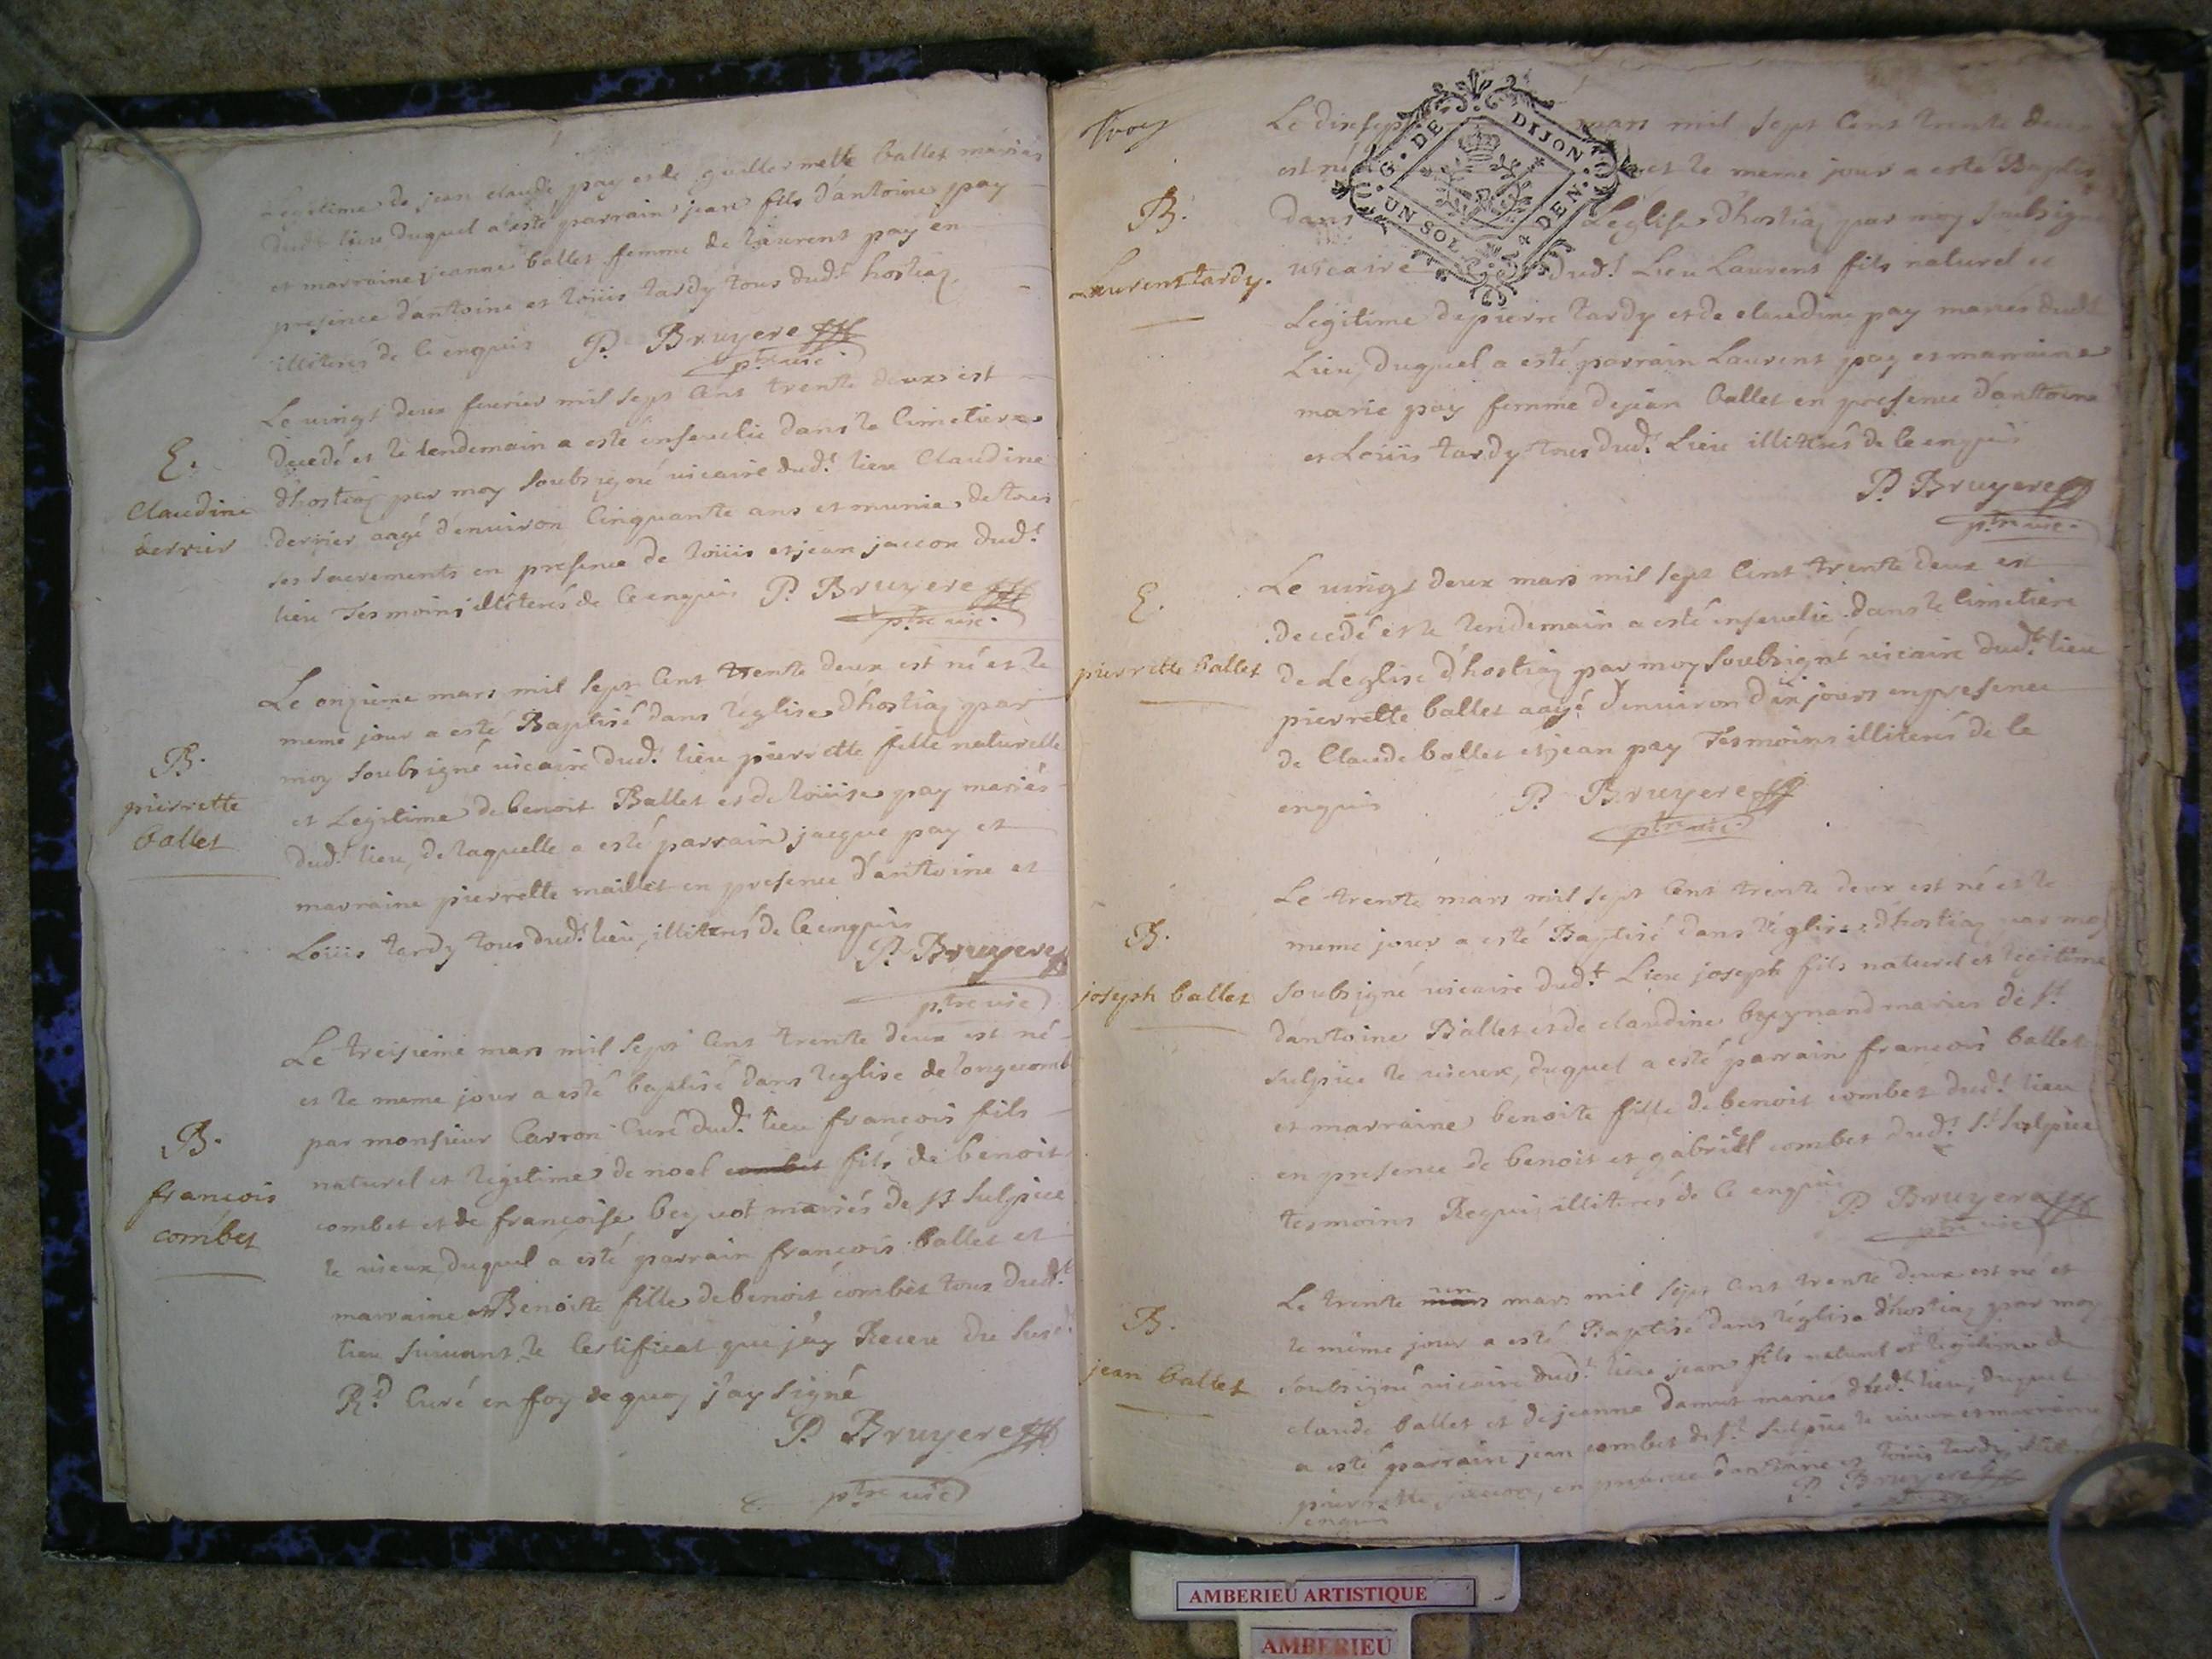 Legitime de jean claude pay et de guillermette ballet mariés
dud.t lieu duquel a esté parrain jean fils d'antoine pay
et marraine jeanne ballet femme de laurent pay en
presence d'antoine et loüis tardy tous dud.t hostiaz
illiterés de ce enquis P. Bruyere
ptre vic.
Le vingt deux feuvrier mil sept cent trente deux est
decedé et le lendemain a esté insevelie dans le cimetiere
d'hostiaz par moy soubsigné vicaire dud.t lieu Claudine
derrier aagé d'environ cinquante ans et munie de tous
ses sacrements en presence de loüis et jean juccon dud.t
lieu tesmoins illiterés de ce enquis P. Bruyere
ptre vic.
E.
Claudine
derrier
Le onzieme mars mil sept cent trente deux est né et le
meme jour a esté Baptisé dans l'église d'hostiaz par
moy soubsigné vicaire dud.t lieu pierrette fille naturelle
et Legitime de benoit Ballet et de loüise pay mariés
dud.t lieu, de laquelle a esté parrain jacque pay et
marraine pierrette maillet en presence d'antoine et
Loüis tardy tous dud.t lieu, illiterés de ce enquis
P. Bruyere
ptre vic
B.
pierrette
ballet
Le treisieme mars mil sept cent trente deux est né
et le meme jour a esté baptisé dans l'eglise de longecomb
par monsieur Carron Curé dud.t lieu françois fils
naturel et legitime de noel combet fils de benoit
combet et de françoise beguot mariés de st sulpice
le vieux, duquel a esté parrain françois ballet et
marraine Benoite fille de benoit combet tous dud.t
lieu suivant le Certificat que j'ay Receu du susd.t
R.d Curé en foy de quoy j'ay signé
P. Bruyere
ptre vic
B.
françois
combet
Le dixsept mars mil sept cent trente deux
est né et le meme jour a esté Baptisé
dans L'eglise d'hostiaz par moy soubsigné
vicaire dud.t Lieu Laurent fils naturel et
Legitime de pierre tardy et de claudine pay mariés dud.t
Lieu, duquel a esté parrain Laurent pay et marraine
marie pay femme de jean ballet en presence d'antoine
et Loüis tardy tous dud.t Lieu illiterés de ce enquis
P. Bruyere
ptre vic.
G. DE DIJON
UN SOL 4 DEN.
B.
Laurent tardy.
Le vingt deux mars mil sept cent trente deux est
decedé et le lendemain a esté insevelie dans le cimetiere
de Leglise d'hostiaz par moy soubsigné vicaire dud.t lieu
pierrette ballet aagé d'environ dix jours en presence
de Claude ballet et jean pay tesmoins illiterés de ce
enquis P. Bruyere
ptre vic
E.
pierrette ballet
Le trente mars mil sept cent trente deux est né et le
meme jour a esté Baptisé dans l'église d'hostiaz par moy
soubsigné vicaire dud.t Lieu joseph fils naturel et legitime
d'antoine Ballet et de claudine mariés de s.t
sulpice le vieux, duquel a esté parrain françois ballet
et marraine benoite fille de benoit combet dud.t lieu
en presence de benoit et gabriell combet dud.t s.t Sulpice
tesmoins Requis illiterés de ce enquis
P. Bruyere
ptre vic
B.
joseph ballet
Le trente un mars mil sept cent trente deux est né et
le même jour a esté Baptisé dans l'église d'hostiaz par moy
soubsigné vicaire dud.t lieu jean fils naturel et legitime de
claude ballet et de jeanne mariés dud.t lieu, duquel
a esté parrain jean combet de s.t Sulpice le vieux et marraine
pierrette juccon, en presence d'antoine et loüis tardy
enquis P. Bruyere
B.
jean ballet
AMBERIEU ARTISTIQUE
AMBERIEU